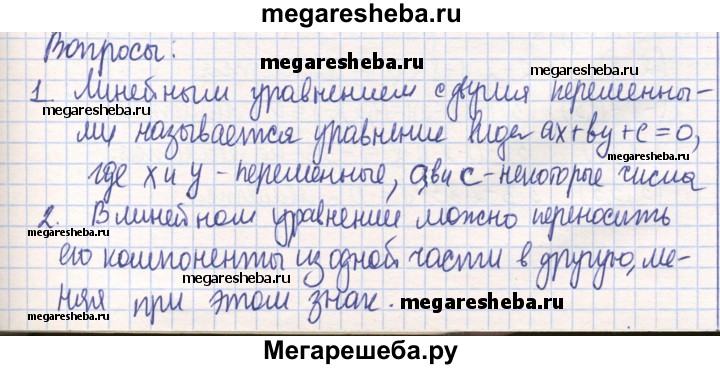 megaresheba.ru
Вопросы:
megaresheba.ru
megaresheba.ru
1. Линейным уравнением с двумя переменны-
megaresheba.ru
ми называется уравнение вида ax+by+c=0,
где x и y - переменные, a, b и c - некоторые числа
2. В линейном уравнении можно переносить
megaresheba.ru
его компоненты из одной части в другую, ме-
megaresheba.ru
няя при этом знак.
megaresheba.ru
Мегарешеба.ру